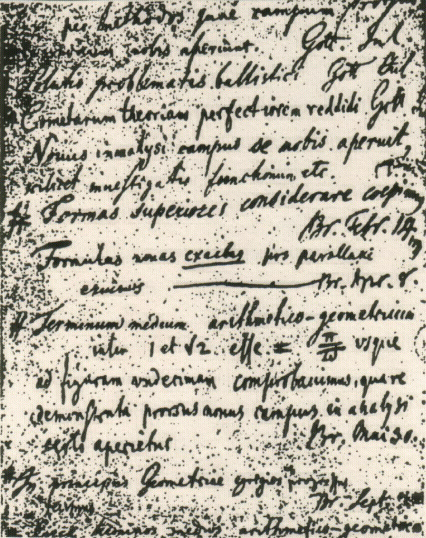 per methodos
nobis aperiunt. Gott. Jul.
problematis ballistici Gott. Jul
Cometarum theoriam perfectiorem reddidi Gott
Novus in analysi campus se nobis aperuit,
scilicet investigatio functionum etc.
Formas superiores considerare coepimus
Br. Febr. 14.
Formulas novas exactas pro parallaxi
eruimus Br. Apr. 8.
Terminum medium arithmetico-geometricum
inter 1 et √2 esse = π/ϖ usque
ad figuram undecimam comprobavimus, quare
demonstrata prorsus novus campus in analysi
certo aperietur Br. Mai. 30.
In principiis Geometriae egregios progressus
fecimus Br. Sept.
medios arithmetico-geometricos